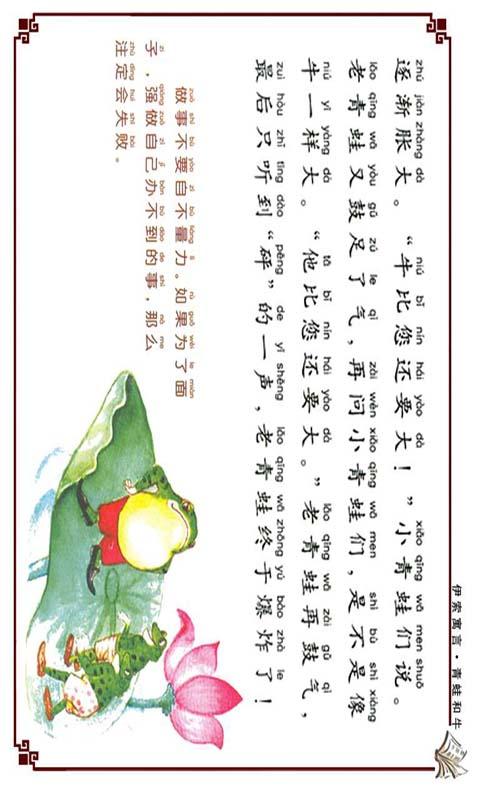 伊索寓言·青蛙和牛
zhú jiàn zhàng dà niú bǐ nín hái yào dà xiǎo qīng wā men shuō
逐渐胀大。“牛比您还要大！”小青蛙们说。
lǎo qīng wā yòu gǔ zú le qì zài wèn xiǎo qīng wā men shì bù shì xiàng
老青蛙又鼓足了气，再问小青蛙们，是不是像
niú yī yàng dà tā bǐ nín hái yào dà lǎo qīng wā zài gǔ qì
牛一样大。“他比您还要大。”老青蛙再鼓气，
zuì hòu zhǐ tīng dào pēng de yī shēng lǎo qīng wā zhōng yú bào zhà le
最后只听到“砰”的一声，老青蛙终于爆炸了！
zuò shì bù yào zì bù liàng lì rú guǒ wèi le miàn
做事不要自不量力。如果为了面
zi qiáng zuò zì jǐ bàn bù dào de shì nà me
子，强做自己办不到的事，那么
zhù dìng huì shī bài
注定会失败。